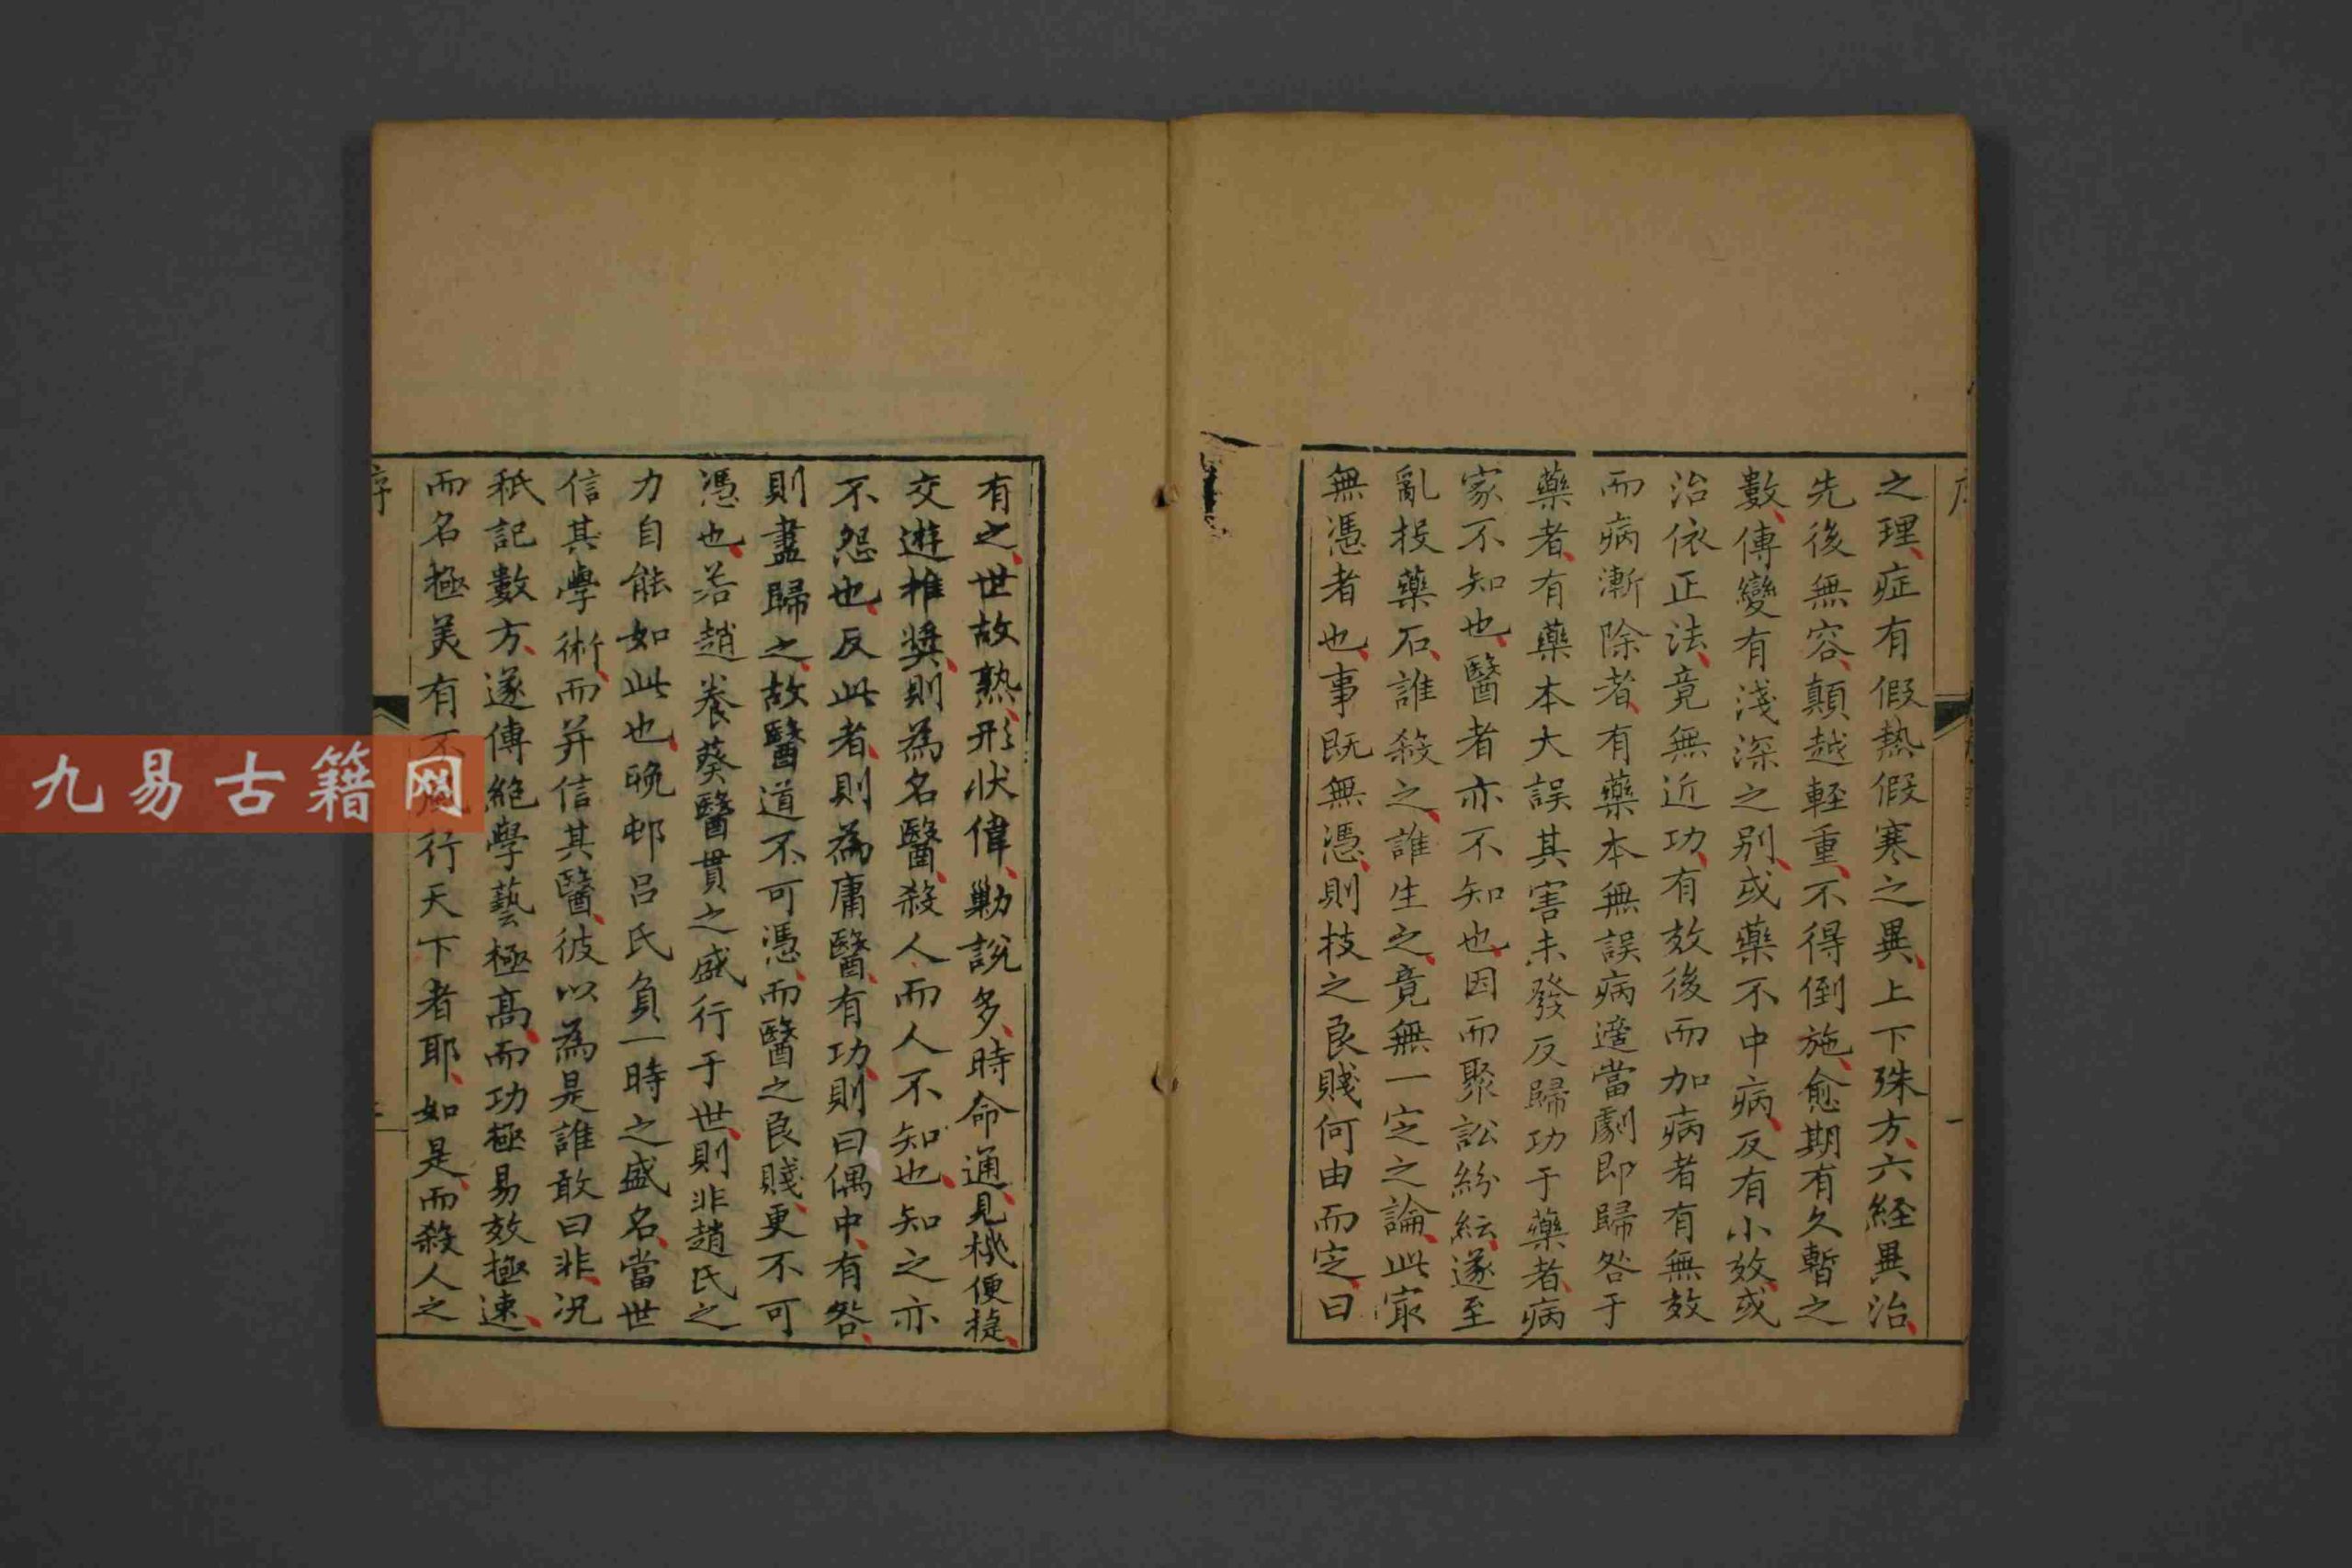 之理症有假熱假寒之異上下殊方六經異治
先後無容顛越輊重不得倒施愈期有久暫之
數傳變有淺深之别或藥不中病反有小效或
治依正法竟無近功有效後而加病者有無效
而病漸除者有藥本無誤病適當劇即歸咎于
藥者有藥本大誤其害未發反歸功于藥者病
家不知也醫者亦不知也因而聚訟紛紜遂至
亂投藥石誰殺之誰生之竟無一定之論此㝡
無憑者也事既無憑則技之良賤何由而定曰
有之世故熟形狀偉勦說多時命通見機便捷
交遊推奬則為名醫殺人而人不知也知之亦
不怨也反此者則為庸醫有功則曰偶中有咎
則盡歸之故醫道不可憑而醫之良賤更不可
憑也若趙養葵醫貫之盛行于世則非趙氏之
力自能如此也晚邨呂氏負一時之盛名當世
信其學術而并信其醫彼以為是誰敢曰非况
秖記數方遂傳絶學藝極髙而功極易效極速
而名極美有不風行天下者耶如是而殺人之
序
九易古籍网